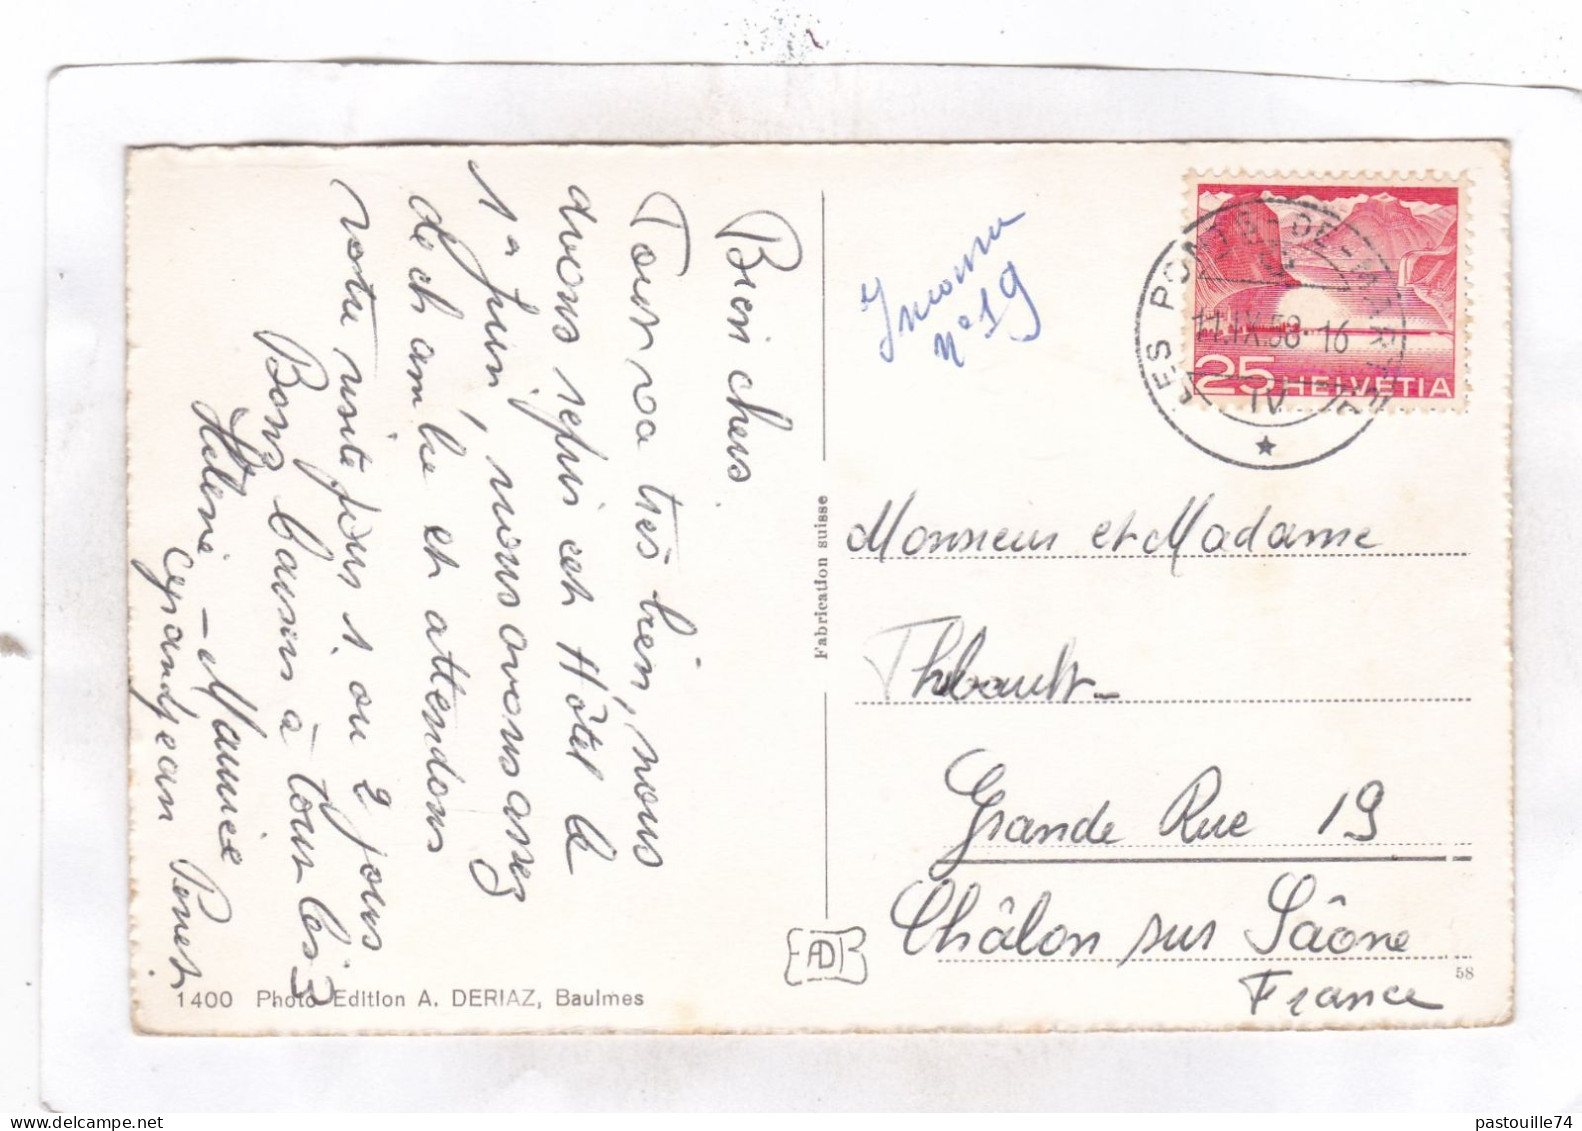 Bien chers
Tour va très bien, nous
avons repis cet Hôtel le
1er Juin, nous avons assez
de ch am bre et attendons
votre visite pour 1 ou 2 jours
Bons baisers à tous les 3
Hélène - Maurice
Grandjean Perret
1400 Photo Edition A. DERIAZ, Baulmes
Fabrication suisse
AD
Inconnu
n° 19
LES PONTS-DE-MARTEL
11.IX.58-16
25 HELVETIA
Monsieur et Madame
Thibault
Grande Rue 19
Châlon sur Saône
France
58
pastouille74